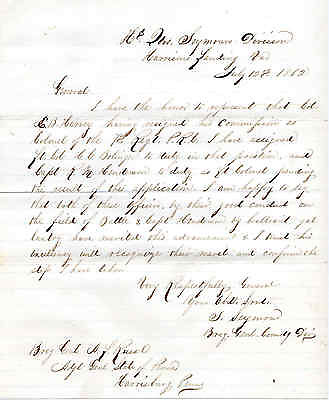 Hd. Qrs. Seymours Division
Harrisons Landing Va
July 12th 1862
General
I have the honor to represent that Col
E B Harvey having resigned his Commission as
Colonel of the 7th Regt. P.R.C. I have assigned
Lt. Col. H C Bolinger to duty in that position, and
Capt R M Henderson to duty as Lt Colonel pending
the result of this application. I am happy to say
that both of these officers, by their good conduct on
the field of Battle & Capt Henderson by brilliant gal
lantry have merited this advancement & I trust his
Excellency will recognize their merit and confirm the
step I have taken
Very Respectfully, General
Your Obdt. Servt.
T. Seymour
Brig Genl. Comdg Div
Brig Genl A L Russell
Adjt Genl State of Penna
Harrisburg Penna